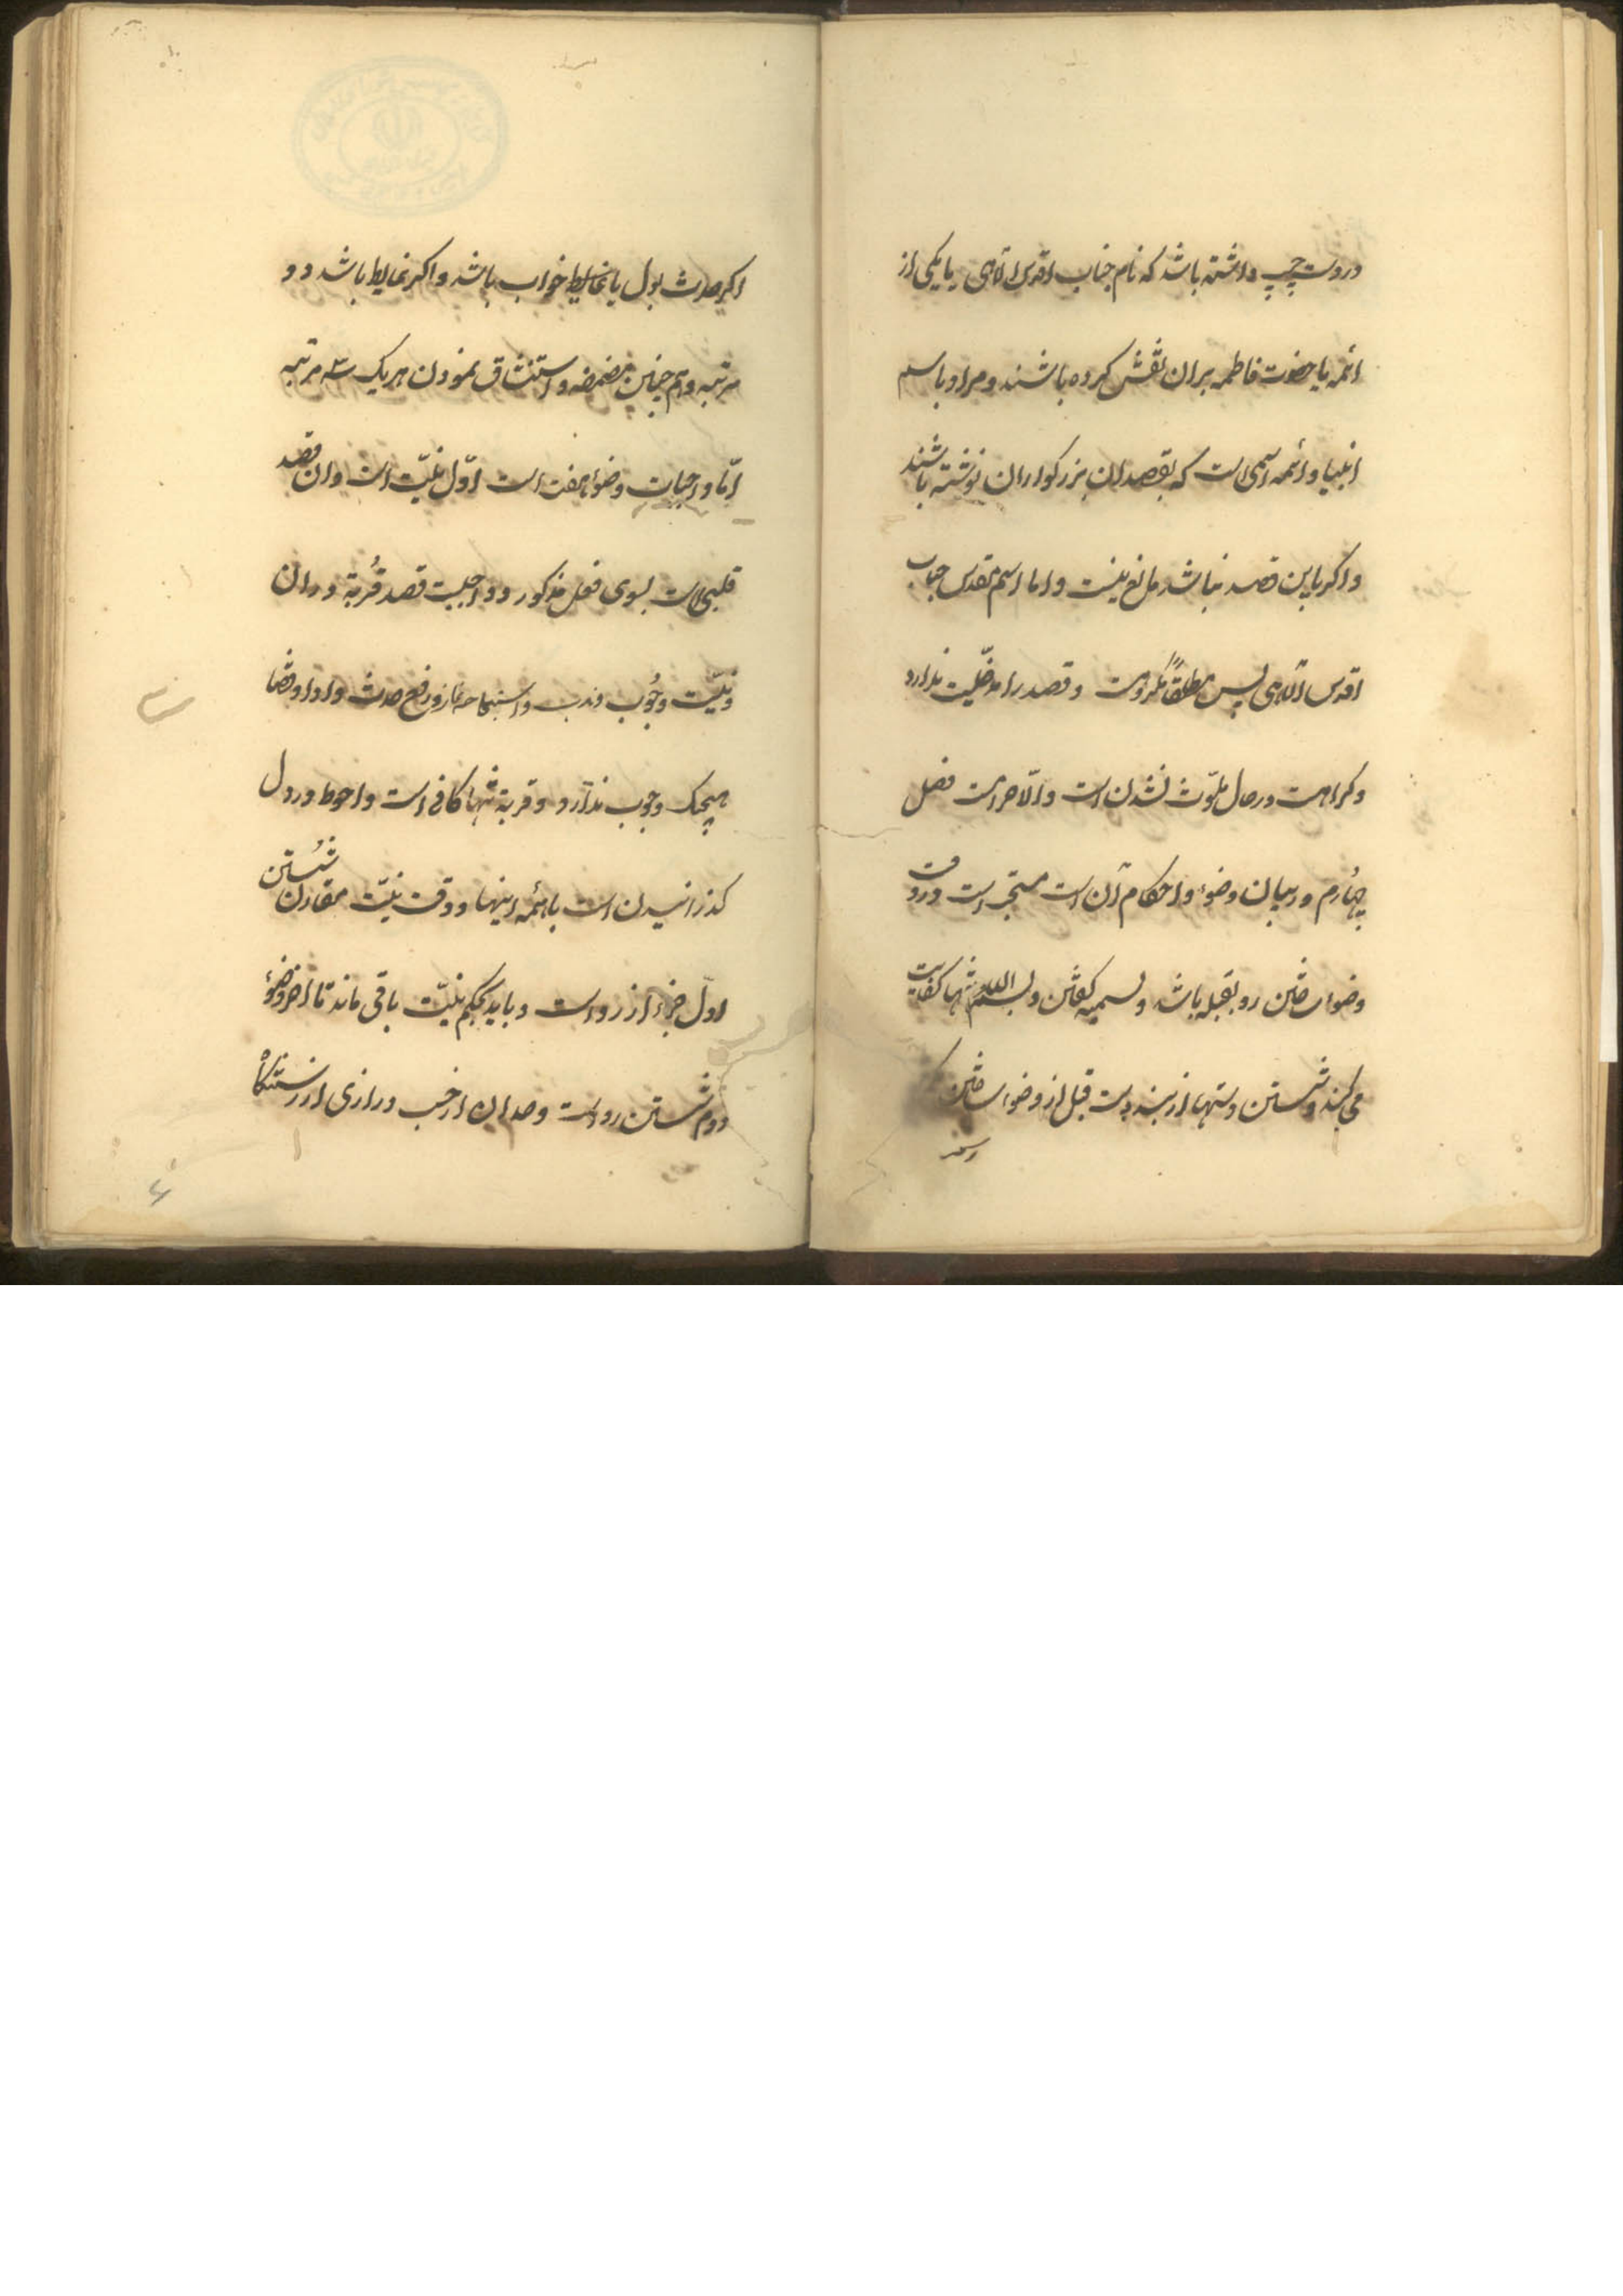 در دست چپ داشته باشد که نام جناب اقدس الآهی یا یکی از
ائمه یا حضرت فاطمه بران نقش کرده باشند و مراد باسم
انبیا و ائمه اسمی است که بقصد ان بزرکواران نوشته باشند
و اکر باین قصد نباشد مانع نیست و اما اسم مقدس جناب
اقدس الآهی پس مطلقاً مکروهست و قصد را مدخلیت ندارد
و کراهت در حال ملوّث نشدن است و الّا حرامست فصل
چهارم در بیان وضوء و احکام آن است مستحب است در وقت
وضو ساختن رو بقبله باشد و بسمیه کفتن و بسم الله تنها کفایت
می کند و شستن دستها از بند دست قبل از وضو ساختن یک
اکر حدث بول یا خواب باشد و اکر غایط باشد دو
مرتبه و هم چنین مضمضه و استنشاق نمودن هر یک سه مرتبه
امّا واجبات وضوء هفت است اوّل نیّت است و ان قصد
قلبی است بسوی فعل مذکور و واجبست قصد قُربة در ان
و نیّت وجُوب و ندب و استباحه نماز و رفع حدث و ادا و قضا
هیچیک وجوب ندارد و قربة تنها کافی است و احوط در دل
کذرانیدن است با همٔه اینها و وقت نیّت مقارن شُستن
اوّل جزء از رو است و باید بحکم نیّت باقی ماند تا اخر وضوء
دوم شستن رو است و حد ان از حسب درازی از رستنکاه